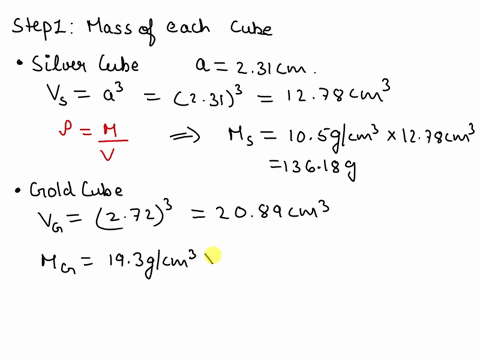 Step1: Mass of each Cube
• Silver Cube a = 2.31 cm.
V_S = a³ = (2.31)³ = 12.78 cm³
ρ = M/V ⟹ M_S = 10.5 g/cm³ × 12.78 cm³
= 136.18 g
• Gold Cube
V_G = (2.72)³ = 20.89 cm³
M_G = 19.3 g/cm³ \